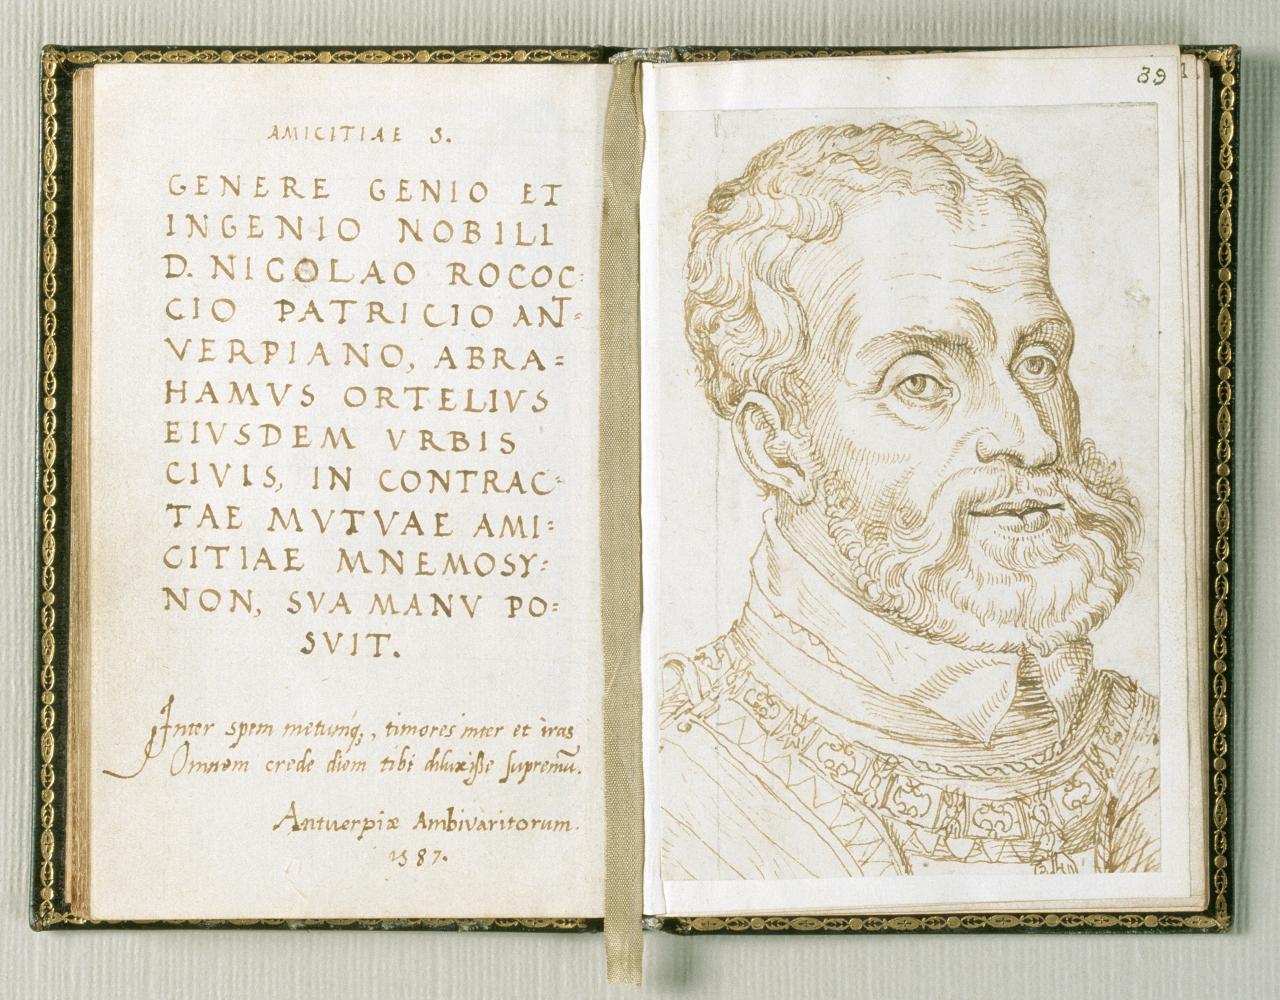 AMICITIAE S.
GENERE GENIO ET
INGENIO NOBILI
D. NICOLAO ROCOC-
CIO PATRICIO ANT=
VERPIANO, ABRA=
HAMVS ORTELIVS
EIVSDEM VRBIS
CIVIS, IN CONTRAC-
TAE MVTVAE AMI=
CITIAE MNEMOSY=
NON, SVA MANV PO=
SVIT.
Inter spem metumq́;, timores inter et iras
Omnem crede diem tibi diluxiſſe ſupremū.
Antuerpiæ Ambivaritorum.
1587.
39